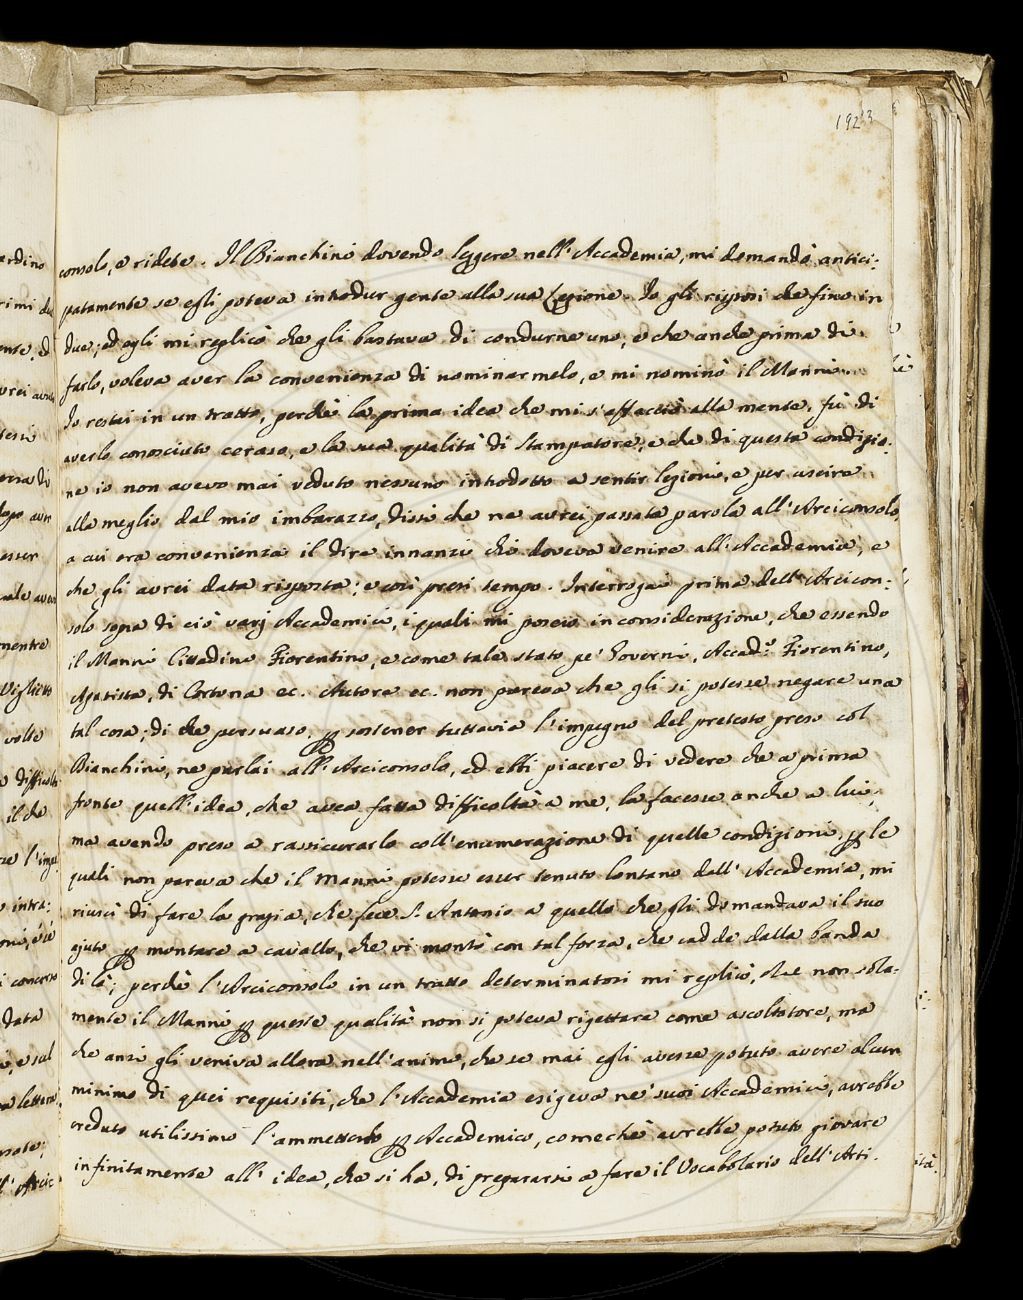 1923
consolo, e ridete. Il Bianchini dovendo leggere nell'Accademia, mi domandò antici:
patamente se egli poteva introdur gente alla sua Lezione. Io gli risposi che fino in
due; ed egli mi replicò che gli bastava di condurne uno, e che anche prima di
farlo, voleva aver la convenienza di nominarmelo, e mi nominò il Manni.
Io restai in un tratto, perchè la prima idea che mi s'affacciò alla mente, fù di
averlo conosciuto ceraso, e la sua qualità di Stampatore, e che di questa condizio:
ne io non avevo mai veduto nessuno introdotto a sentir lezioni, e per uscire
alla meglio dal mio imbarazzo, dissi che ne avrei passata parola all'Arciconsolo,
a cui era convenienza il dire innanzi chi doveva venire all'Accademia, e
che gli avrei data risposta; e così presi tempo. Interrogai prima dell'Arcicon:
solo sopra di ciò varj Accademici, i quali mi posero in considerazione, che essendo
il Manni Cittadino Fiorentino, e come tale stato pe' Governi, Accad.º Fiorentino,
Apatista, di Cortona ec. Autore ec. non pareva che gli si potesse negare una
tal cosa; di che persuaso, p sostener tuttavia l'impegno del pretesto preso col
Bianchini, ne parlai all'Arciconsolo, ed ebbi piacere di vedere che a prima
fronte quell'idea, che avea fatta difficoltà a me, la facesse anche a lui;
ma avendo preso a rassicurarlo coll'enumerazione di quelle condizioni, p le
quali non pareva che il Manni potesse esser tenuto lontano dall'Accademia, mi
riuscì di fare la grazia, che fece S. Antonio a quello che gli domandava il suo
ajuto p montare a cavallo, che vi montò con tal forza, che cadde dalla banda
di là; perchè l'Arciconsolo in un tratto determinatosi mi replicò, che non sola:
mente il Manni p queste qualità non si poteva rigettare come ascoltatore, ma
che anzi gli veniva allora nell'animo, che se mai egli avesse potuto avere alcun
minimo di quei requisiti, che l'Accademia esigeva ne' suoi Accademici, avrebbe
creduto utilissimo l'ammetterlo p Accademico, comechè avrebbe potuto giovare
infinitamente all'idea, che si ha, di prepararsi a fare il Vocabolario dell'Arti.